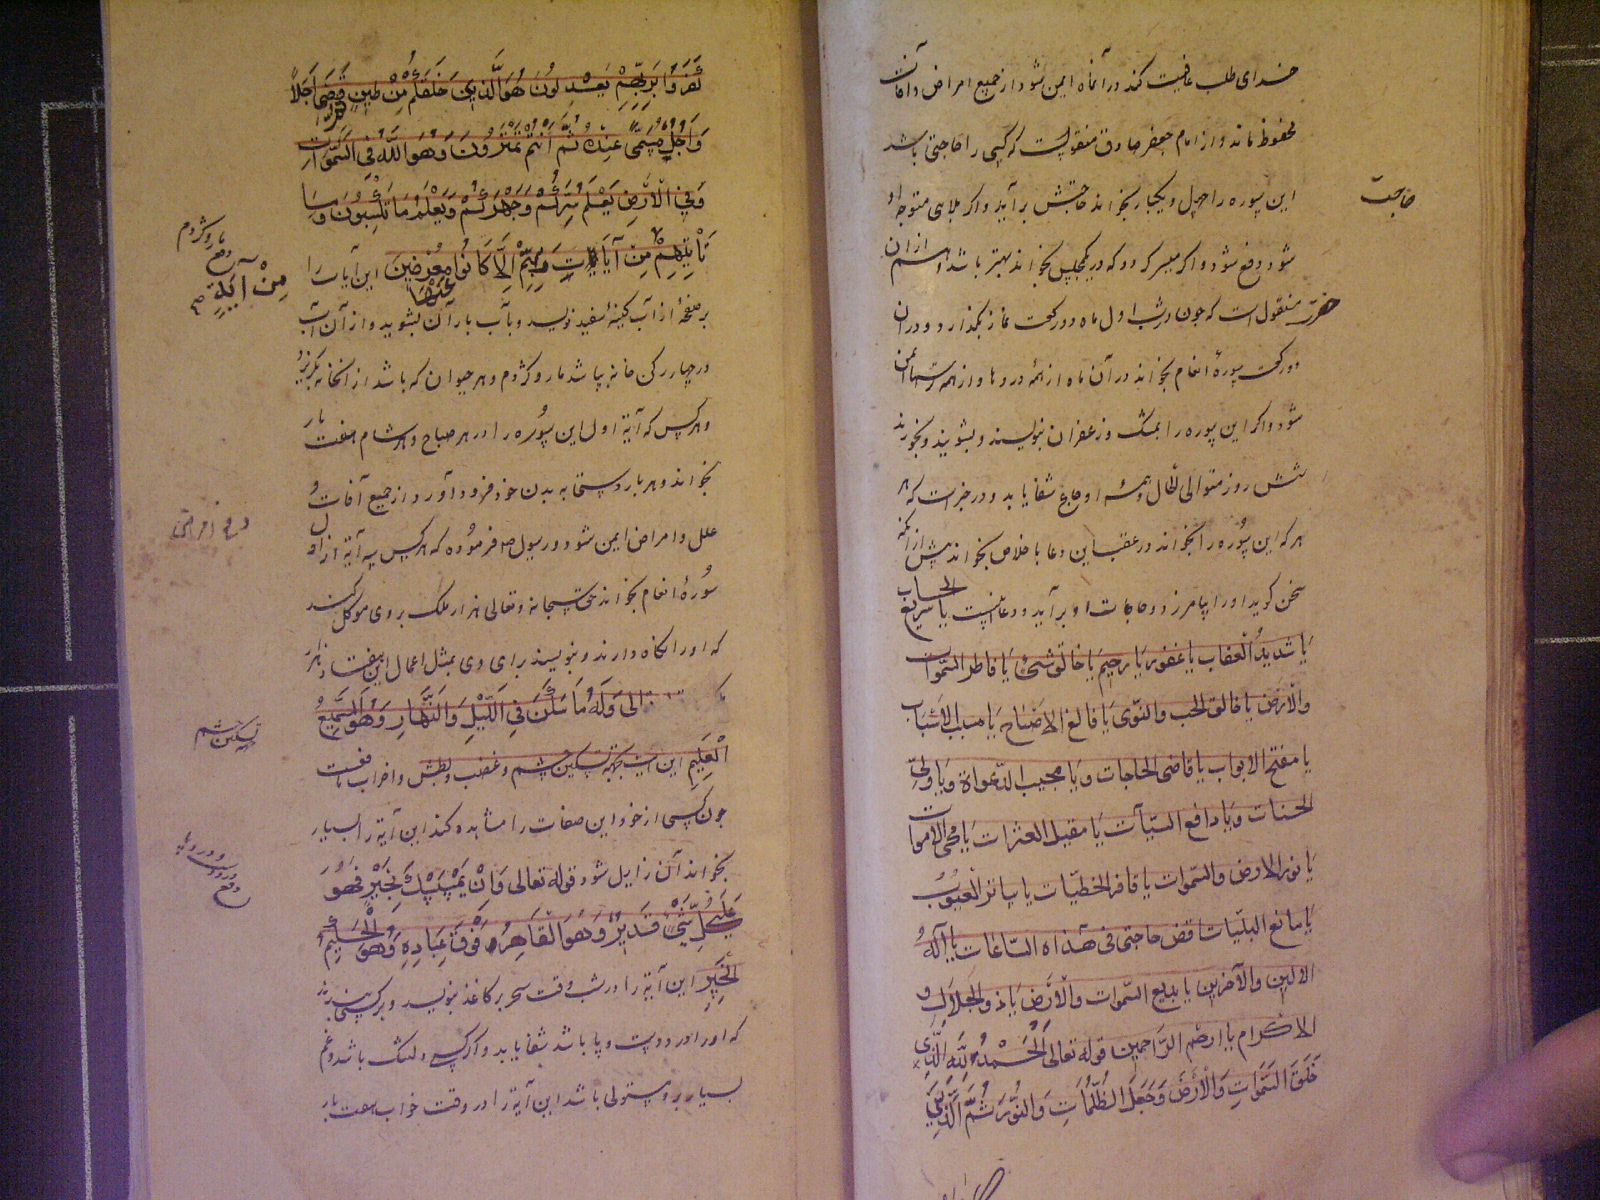 خدای طلب عافیت کند در آنماه ایمن شود از جمیع امراض و آفات
محفوظ ماند و از امام جعفر صادق منقولست که کسی را حاجتی باشد
این سوره را چهل و یکبار بخواند حاجتش برآید و اکر بلایی متوجه او
حاجت
شود دفع شود و اکر میسر کردد که در یکمجلس بخواند بهتر باشد و هم از ان
حضرت منقول است که چون در شب اول ماه دو رکعت نماز بکذارد و در ان
دو رکعت سوره انعام بخواند در آن ماه از همه دردها و از همه ایمن
شود و اکر این سوره را بمشک و زعفران بنویسند و بشویند و بخورند
شش روز متوالی اوجاع شفا یابد و در خبرست که
هر که این سوره را بخواند در عقب این دعا باخلاص بخواند پیش از آنکه
سخن کوید او را بیامرزد و حاجات او برآید و دعا اینست یا سریع الحساب
یا شدید العقاب یا غفور یا رحیم یا خالق شیٔ یا فاطر السموات
والارض یا فالق الحب والنوی یا فالغ الاصباح یا مسبب الاسباب
یا مفتح الابواب یا قاضی الحاجات و یا مجیب الدعواة و یا ولی
الحسنات و یا دافع السیآت یا مقیل العثرات یا محی الاموات
یا نور الارض والسموات یا غافر الخطیات یا ساتر العیوب
یا مانع البلیات اقض حاجتی فی هذاه الساعات یا اله
الاولین والآخرین یا بدیع السموات والارض یا ذو الجلال و
الاکرام یا ارحم الراحمین قوله تعالی الْحَمْدُ لِلَّهِ الَّذِی
خَلَقَ السَّمَوَاتِ وَالْاَرْضَ وَجَعَلَ الظُّلُمَاتِ وَالنُّورَ ثُمَّ الَّذِینَ
کَفَرُوا بِرَبِّهِمْ یَعْدِلُونَ هُوَ الَّذِی خَلَقَکُمْ مِنْ طِینٍ ثُمَّ قَضَی اَجَلاً
وَاَجَلٌ مُسَمًّی عِنْدَهُ ثُمَّ اَنْتُمْ تَمْتَرُونَ وَهُوَ اللَّهُ فِی السَّمَوَاتِ
وَفِی الْاَرْضِ یَعْلَمُ سِرَّکُمْ وَجَهْرَکُمْ وَیَعْلَمُ مَا تَکْسِبُونَ وَمَا
تَاْتِیهِمْ مِنْ آیَاتِ رَبِّهِمْ اِلَّا کَانُوا عَنْهَا مُعْرِضِینَ این آیات را
دفع مار و کژدم
مِنْ آیَةٍ
بر صفحهٔ از آبکینهٔ سفید نویسد و بآب باران بشوید و از آن آب
در چهار رکن خانه بپاشد مار و کژدم و هر حیوان که باشد از آنخانه بکریزد
و هر کس که آیة اول این سوره را در هر صباح و هر شام هفت بار
بخواند و هر بار دستها به بدن خود فرود آورد از جمیع آفات و
علل و امراض ایمن شود و رسول فرموده که هر کس سه آیة از اول
سورهٔ انعام بخواند حق سبحانه و تعالی هزار ملک بروی موکل کند
که او را نکاه دارند و بنویسند برای وی بمثل اعمال این هفتاد هزار
ملک وَلَهُ مَا سَکَنَ فِی اللَّیْلِ وَالنَّهَارِ وَهُوَ السَّمِیعُ
تسکین خشم
الْعَلِیمُ این آیت جهة تسکین خشم و غضب و بطش و اضراب نافعست
چون کسی از خود این صفات را مشاهده کند این آیة را بسیار
بخواند آن زایل شود قوله تعالی وَاِنْ یَمْسَسْکَ بِخَیْرٍ فَهُوَ
عَلَی کُلِّ شَیْءٍ قَدِیرٌ وَهُوَ الْقَاهِرُ فَوْقَ عِبَادِهِ وَهُوَ الْحَکِیمُ
الْخَبِیرُ این آیة را در شب وقت سحر بر کاغذ بنویسد و بر کسی بندند
که او را درد دست و پا باشد شفا یابد و اکر کسی دلتنک باشد و غم
بسیار برو مستولی باشد این آیة را در وقت خواب هفت بار